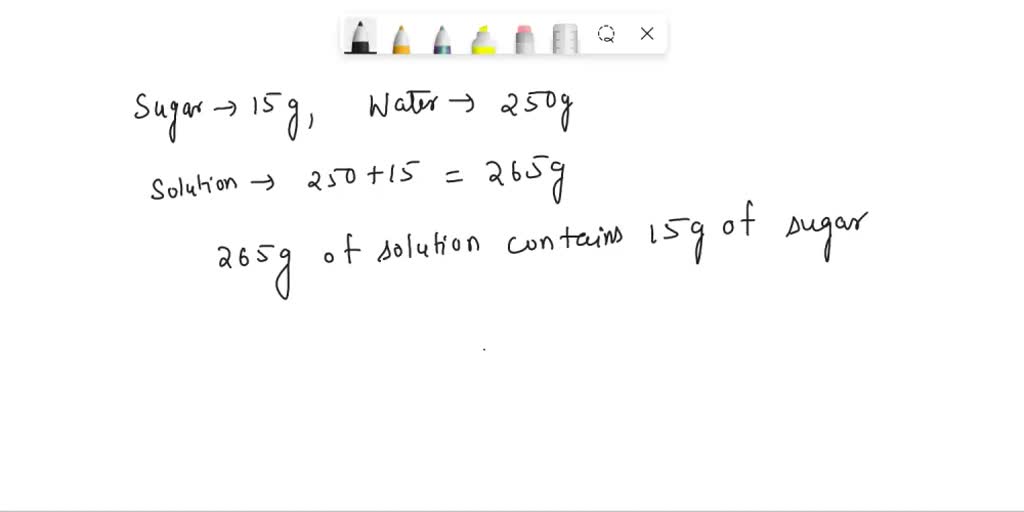 Sugar → 15g, Water → 250g
Solution → 250 + 15 = 265g
265g of solution contains 15g of sugar